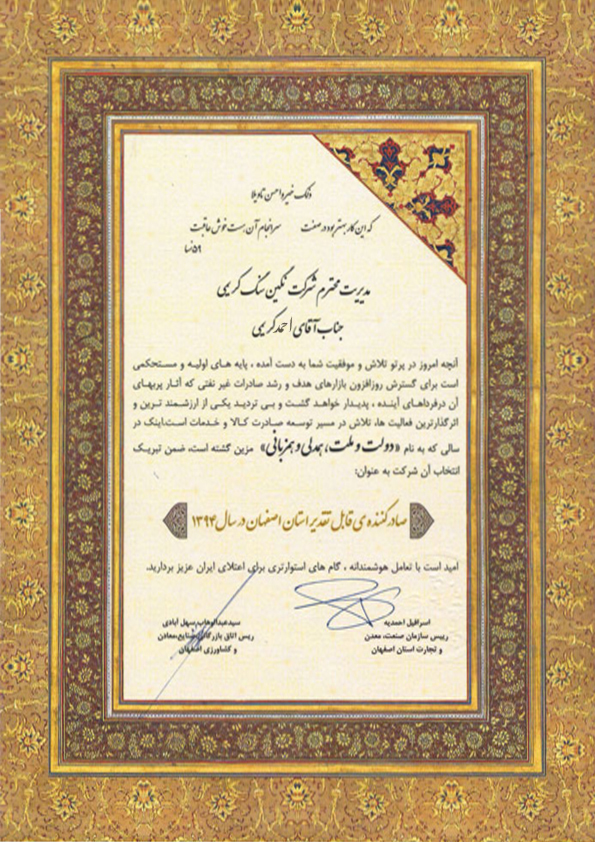 ذلک خیر و احسن تاویلا
که این کار بهتر بود در صفت سرانجام آن هست خوش عاقبت
۵۹ نسا
مدیریت محترم شرکت نگین سنگ کریمی
جناب آقای احمد کریمی
آنچه امروز در پرتو تلاش و موفقیت شما به دست آمده ، پایه های اولیه و مستحکمی
است برای گسترش روزافزون بازارهای هدف و رشد صادرات غیر نفتی که آثار پربهای
آن درفرداهای آینده ، پدیدار خواهد گشت و بی تردید یکی از ارزشمند ترین و
اثرگذارترین فعالیت ها، تلاش در مسیر توسعه صادرت کالا و خدمات است.اینک در
سالی که به نام «دولت و ملت، همدلی و همزبانی» مزین گشته است، ضمن تبریک
انتخاب آن شرکت به عنوان:
صادر کننده ی قابل تقدیر استان اصفهان در سال ۱۳۹۴
امید است با تعامل هوشمندانه ، گام های استوارتری برای اعتلای ایران عزیز بردارید.
اسرافیل احمدیه
رییس سازمان صنعت، معدن
و تجارت استان اصفهان
سیدعبدالوهاب سهل آبادی
ریس اتاق بازرگانی،صنایع،معادن
و کشاورزی اصفهان